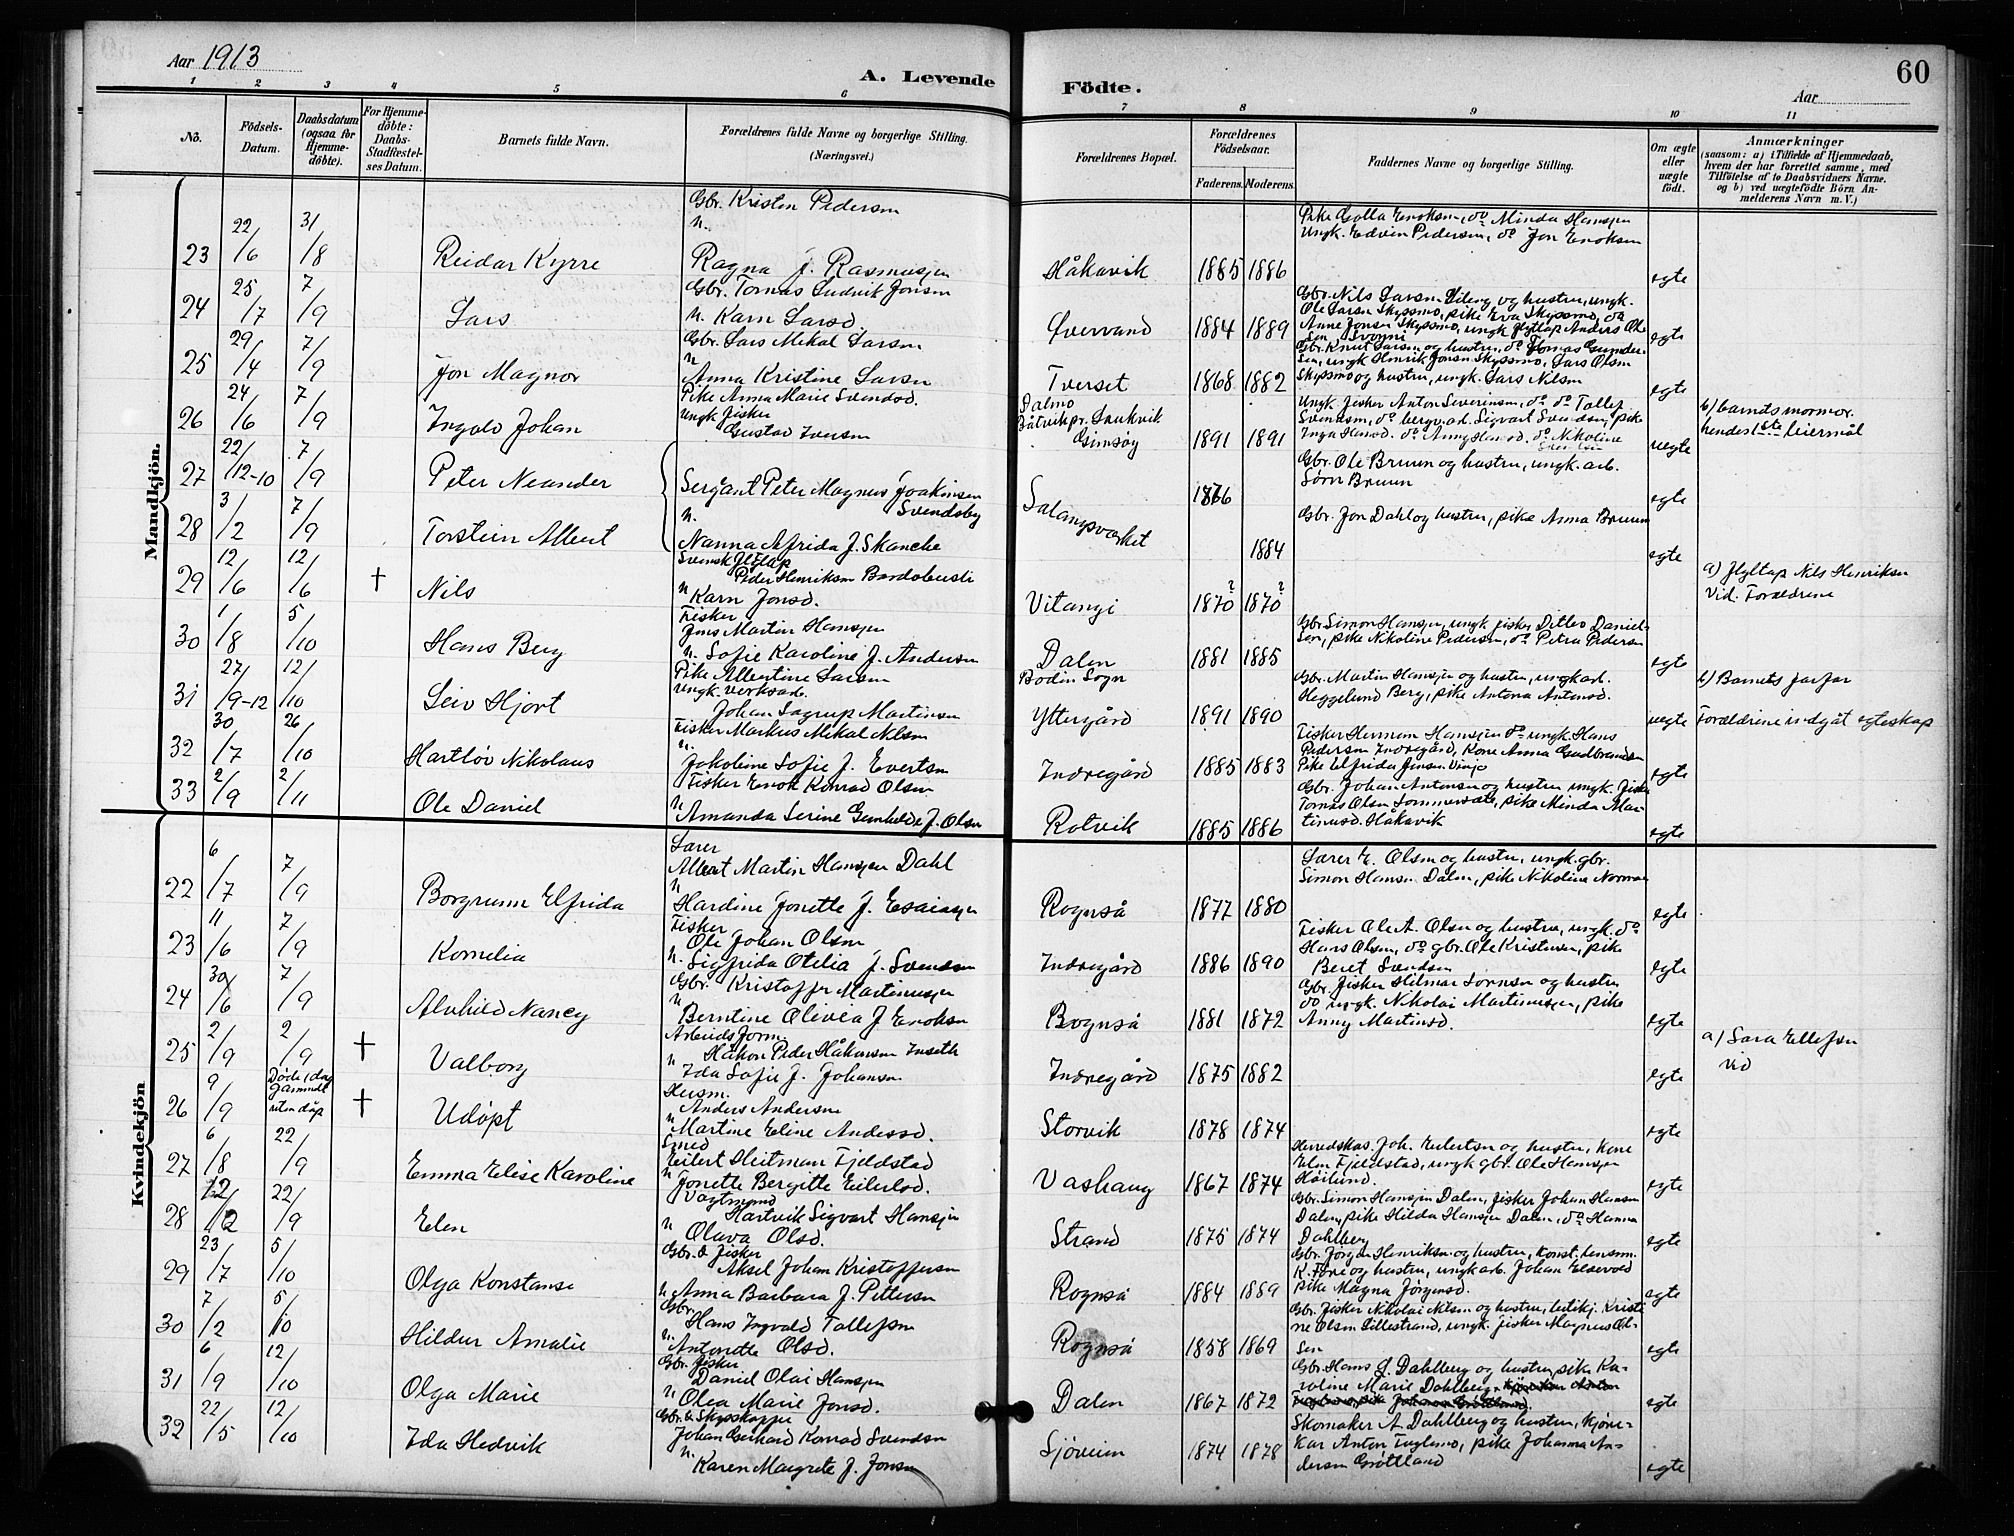 Aar 1913
A. Levende
Födte.
Aar
60
1 2 3 4 5 6 7 8 9 10 11
No.
Födsels-Datum.
Daabsdatum (ogsaa for Hjemme-döbte).
For Hjemme-döbte: Daabs-Stadfæstel-ses Datum.
Barnets fulde Navn.
Forældrenes fulde Navne og borgerlige Stilling. (Næringsvei.)
Forældrenes Bopæl.
Forældrenes Födselsaar.
Faderens. Moderens.
Faddernes Navne og borgerlige Stilling.
Om ægte eller uægte født.
Anmærkninger
(saasom: a) i Tilfælde af Hjemmedaab,
hvem der har forrettet samme, med
Tilföielse af to Daabsvidners Navne.
og b) ved uægtefödte Börn An-
melderens Navn m. V.)
Mandkjön.
23 22/6 31/8 Reidar Kyrre
Gbr. Kristen Pedersen
h.
Ragna J. Rasmussen
Håkavik 1885 1886
Pike Golla Enoksen, do Minda Hansen
Ungk. Edvin Pedersen, do Jon Enoksen
egte
24 25/7 7/9 Lars
Gbr. Tomas Ludvik Jonsen
h. Karn Larsd
Övervand 1884 1889
Ole Larsen Skyssmo, pike Eva Skyssmo, do
egte
25 29/4 7/9 Jon Magnor
Gbr. Lars Mikal Larsen
h
Anna Kristine Larsen
Tverset 1868 1882
Skyssmo og hustru, ungk. Lars Nilsen
egte
26 24/6 7/9 Ingolv Johan
Pike Anna Marie Svendsd.
ungk. fisker
Gustav Iversen
Dalmo
Gimsöy
1891 1891
Ungk. fisker Anton Severinsen, do do Tollef
Svendsen, do bergv.arb. Sigvart Svendsen, pike
uegte
b) barnets mormor.
hendes 1ste leiermål
27 22/12-10 7/9 Peter Neander
Sergant Peter Magnus Joakimsen
Svendsby
h.
Nanna Alfrida J. Skanche
Salangsverket
1876
Gbr. Ole Bruun og hustru, ungk. arb.
Sörn Bruun
egte
28 3/2 7/9 Torstein Albert
1884
Gbr. Jon Dahl og hustru, pike Anna Bruun
egte
29 12/6 12/6 † Nils
Svensk flytlap
Peder Henriksen Bardobusti
h Karn Jonsd.
Vitangi 1870? 1870?
a) Flytlap Nils Henriksen
Vid. Forældrene
30 1/8 5/10 Hans Berg
Fisker
Jens Martin Hansen
h. Sofie Karoline J. Andersen
Dalen 1881 1885
Gbr. Simon Hansen, ungk fisker Ditlev Daniel-
sen, pike Nikoline Pedersen, do Petra Pedersen
egte
31 27/9-12 12/10 Leiv Hjort
Pike Albertine Larsen
ungk. verksarb.
Johan Sagrup Martinsen
Bodin Sogn
Yttergård 1891 1890
Gbr. Martin Hansen og hustru, ungk arb.
Heggelund Berg, pike Antona Antonsd.
uegte
b) Barnets farfar
Forældrene indgåt egteskap
32 30/7 26/10 Hartlöv Nikolaus
Fisker Markus Mekal Nilsen
h.
Jakobine Sofie J. Evertsen
Indregård 1885 1883
Fisker Herman Hansen do ungk. Hans
Pedersen Indregård, Kone Anna Gudbrandsen
Pike Elfrida Jensen Vinje
egte
33 2/9 2/11 Ole Daniel
Fisker Enok Konrad Olsen
h
Amanda Serine Gunhilde J. Olsen
Rotvik 1885 1886
Gbr. Johan Antonsen og hustru ungk. fisker
Tomas Olsen Sommersæte, pike Minda Mar-
tinusd. Håkavik
egte
Kvindekjön
22 6/7 7/9 Borgrunn Elfrida
Lærer
Albert Martin Hansen Dahl
h
Hardine Jonette J. Esaiassen
Rognså 1877 1880
Lærer E. Olsen og hustru, ungk. gbr.
Simon Hansen Dalen, pike Nikoline Norman
egte
23 11/6 7/9 Kornelia
Fisker
Ole Johan Olsen
h. Sigfrida Otilia J. Svendsen
Indregård 1886 1890
Fisker Ole A. Olsen og hustru, ungk. do
Hans Olsen, do gbr. Ole Kristensen, pike
Beret Svendsen
egte
24 30/6 7/9 Alvhild Nancy
Gbr. Kristoffer Martinussen
h
Berntine Olivea J. Enoksen
Rognså 1881 1872
Gbr. fisker Hilmar Sörnsen og hustru
do ungk. Nikolai Martinussen, pike
Anny Martinsd.
egte
25 2/9 2/9 † Valborg
Arbeidsform.
Håkon Peder Håkonsen Inseth
h
Ida Sofie J. Johansen
Indregård 1875 1882
egte
a) Sara Ellefsen
vid
26 9/9 Döde 1 dag
gammel
uten dåp
† Udöpt
Husm.
Anders Andersen
h Martine Eline Andersd.
Storvik 1878 1874
egte
27 6/8 22/9 Emma Elise Karoline
Smed
Eilert Heitman Fjeldstad
h Jonette Bergitte Eilertsd.
Vashaug 1867 1874
Herredskas. Joh. Eilertsen og hustru, Kone
Elen Fjeldstad, ungk gbr. Ole Hansen
Höilund.
egte
28 22/9 Elen
Vagtmand
Hartvik Sigvart Hansen
h
Olava Olsd.
Strand 1875 1874
Gbr. Simon Hansen Dalen, fisker Johan Hansen
Dalen, pike Hilda Hansen Dalen, do Hanna
Dahlberg
egte
29 23/7 5/10 Olga Konstanse
Gbr. & fisker
Aksel Johan Kristoffersen
h Anna Barbara J. Pettersen
Rognså 1884 1889
Gbr. Jörgen Henriksen og hustru, konst. lensm.
K. Tőne og hustru, ungk arb. Johan Elsevold
pike Magna Jörgensd.
egte
30 7/2 5/10 Hildur Amalie
Gbr.
Hans Ingvald Tollefsen
h.
Antonette Olsd.
Rognså 1858 1869
Gbr. fisker Nikolai Nilsen og hustru,
ne Olsen Lillestrand, ungk. fisker Magnus Ol-
sen
egte
31 6/9 12/10 Olga Marie
Gbr. fisker
Daniel Olai Hansen
h
Olea Marie Jonsd.
Dalen 1867 1872
Gbr. Hans J. Dahlberg og hustru, pike Ka-
roline Marie Dahlberg
egte
32 22/5 12/10 Ida Hedvik
Gbr. & Skysskaffer
Johan Gerhard Konrad Svendsen
h.
Karen Margrete J. Jonsen
Sjöveien 1874 1878
Skomaker A. Dahlberg og hustru, kjöre-
kar Anton Fuglemo, pike Johanna An-
dersen Gröttland
egte